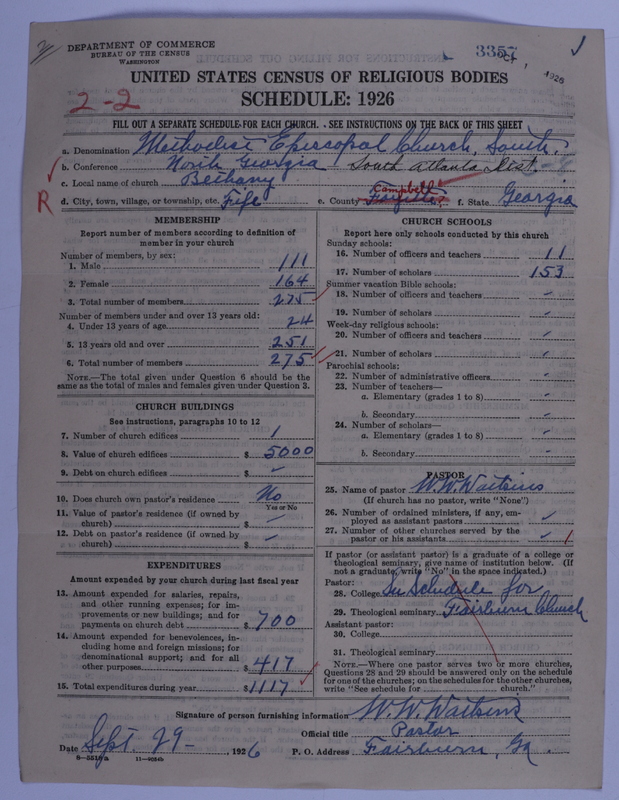 DEPARTMENT OF COMMERCE
BUREAU OF THE CENSUS
WASHINGTON
3357
OCT 1 1926
UNITED STATES CENSUS OF RELIGIOUS BODIES
2-2
SCHEDULE: 1926
FILL OUT A SEPARATE SCHEDULE FOR EACH CHURCH. - SEE INSTRUCTIONS ON THE BACK OF THIS SHEET
a. Denomination Methodist Episcopal Church, South.
b. Conference North Georgia South Atlanta Dist.
c. Local name of church Bethany
R
d. City, town, village, or township, etc. Fife e. County Fayette Campbell f. State Georgia
MEMBERSHIP
Report number of members according to definition of
member in your church
Number of members, by sex:
1. Male 111
2. Female 164
3. Total number of members 275
Number of members under and over 13 years old:
4. Under 13 years of age 24
5. 13 years old and over 251
6. Total number of members 275
NOTE.—The total given under Question 6 should be the
same as the total of males and females given under Question 3.
CHURCH BUILDINGS
See instructions, paragraphs 10 to 12
7. Number of church edifices 1
8. Value of church edifices $ 5000
9. Debt on church edifices $ -
10. Does church own pastor's residence No
Yes or No
11. Value of pastor's residence (if owned by
church) $ -
12. Debt on pastor's residence (if owned by
church) $ -
EXPENDITURES
Amount expended by your church during last fiscal year
13. Amount expended for salaries, repairs,
and other running expenses; for im-
provements or new buildings; and for
payments on church debt $ 700
14. Amount expended for benevolences, in-
cluding home and foreign missions; for
denominational support; and for all
other purposes $ 417
15. Total expenditures during year $ 1117
CHURCH SCHOOLS
Report here only schools conducted by this church
Sunday schools:
16. Number of officers and teachers 11
17. Number of scholars 153
Summer vacation Bible schools:
18. Number of officers and teachers -
19. Number of scholars -
Week-day religious schools:
20. Number of officers and teachers -
21. Number of scholars -
Parochial schools:
22. Number of administrative officers -
23. Number of teachers—
a. Elementary (grades 1 to 8) -
b. Secondary -
24. Number of scholars—
a. Elementary (grades 1 to 8) -
b. Secondary -
PASTOR
25. Name of pastor W. W. Watkins
(If church has no pastor, write "None")
26. Number of ordained ministers, if any, em-
ployed as assistant pastors -
27. Number of other churches served by the
pastor or his assistants -
If pastor (or assistant pastor) is a graduate of a college or
theological seminary, give name of institution below. (If
not a graduate, write "No" in the space indicated.)
Pastor:
28. College See Schedule for
29. Theological seminary Fairburn Church
Assistant pastor:
30. College
31. Theological seminary
NOTE.—Where one pastor serves two or more churches,
Questions 28 and 29 should be answered only on the schedule
for one of the churches; on the schedules for the other churches,
write "See schedule for ______ church."
Signature of person furnishing information W. W. Watkins
Official title Pastor
Date Sept. 29-, 1926 P. O. Address Fairburn, Ga.
8-5518a 11-9024b